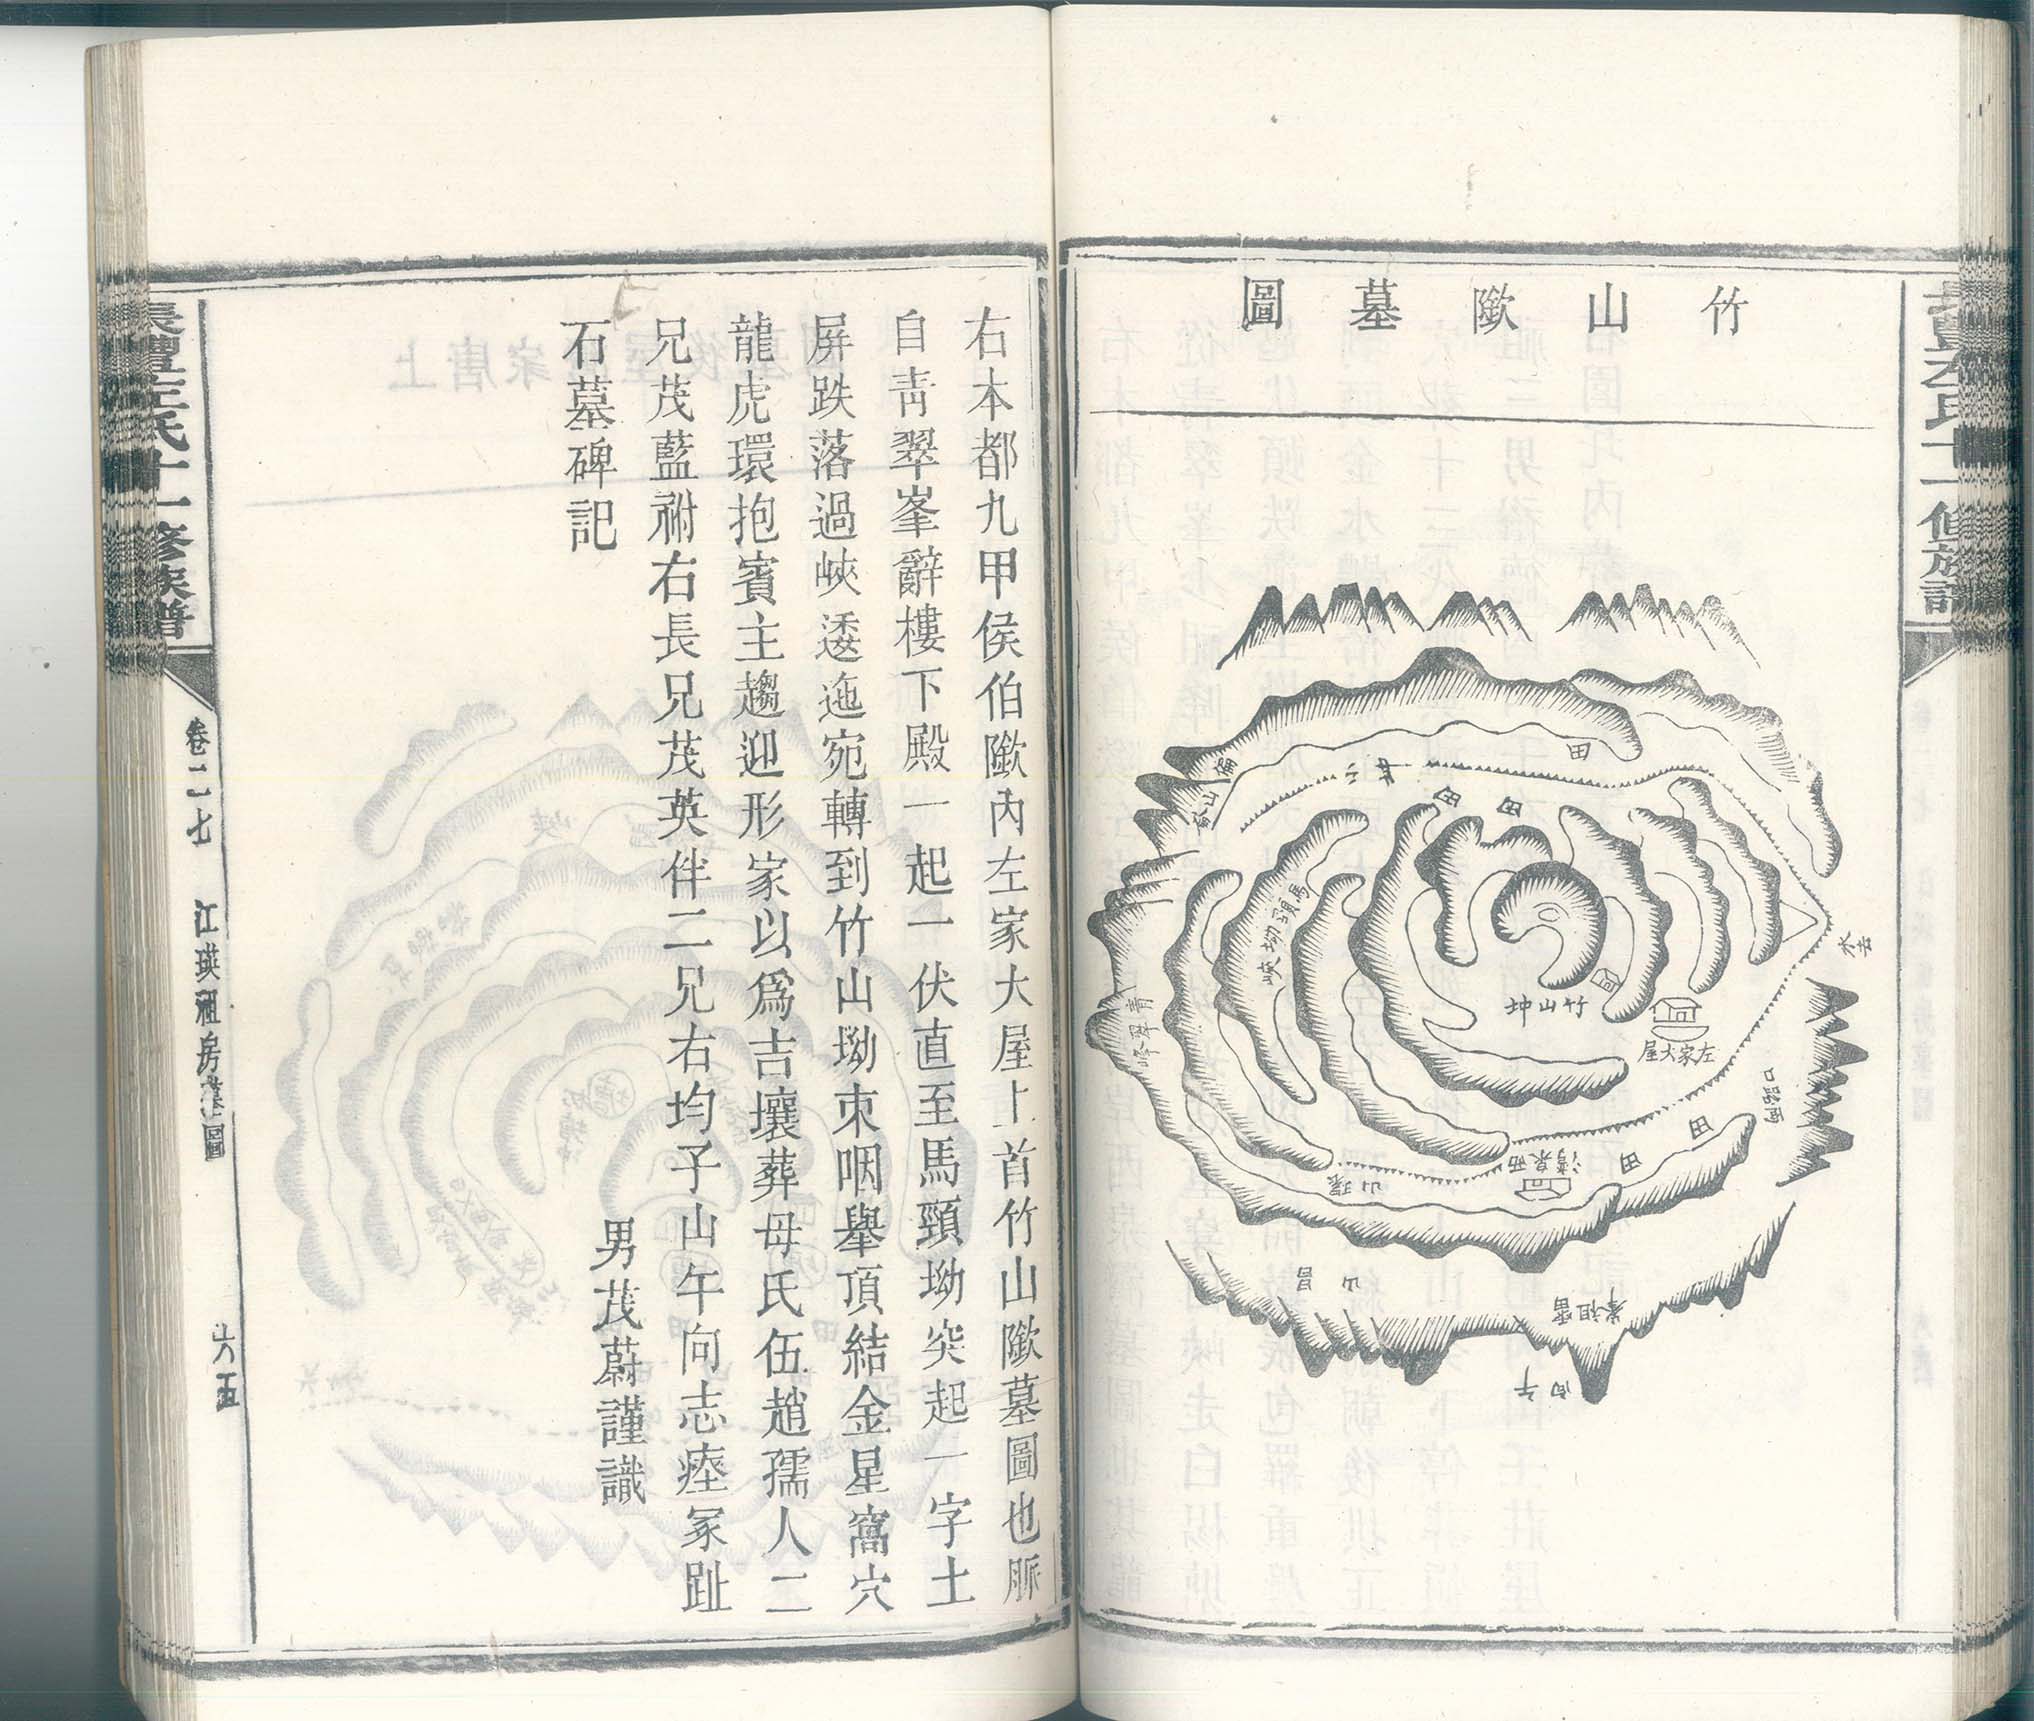 竹山㙁墓圖
偏山
田
田
田
馬頸坳峽
青翠峰
竹山坤
左家大屋
水去
兩路口
田
田
清泉西
環山
雷祖峯
丙午
右本都九甲侯伯㙁內左家大屋上首竹山㙁墓圖也脈
自青翠峯辭樓下殿一起一伏直至馬頸坳突起一字土
屏跌落過峽逶迤宛轉到竹山坳束咽舉頂結金星窩穴
龍虎環抱賓主趨迎形家以為吉壤葬母氏伍趙孺人二
兄茂藍祔右長兄茂英伴二兄右均子山午向志瘞冢趾
石墓碑記
男茂蔚謹識
長豐左氏十一修族譜
卷二七
江瑛祖房墓圖
六五